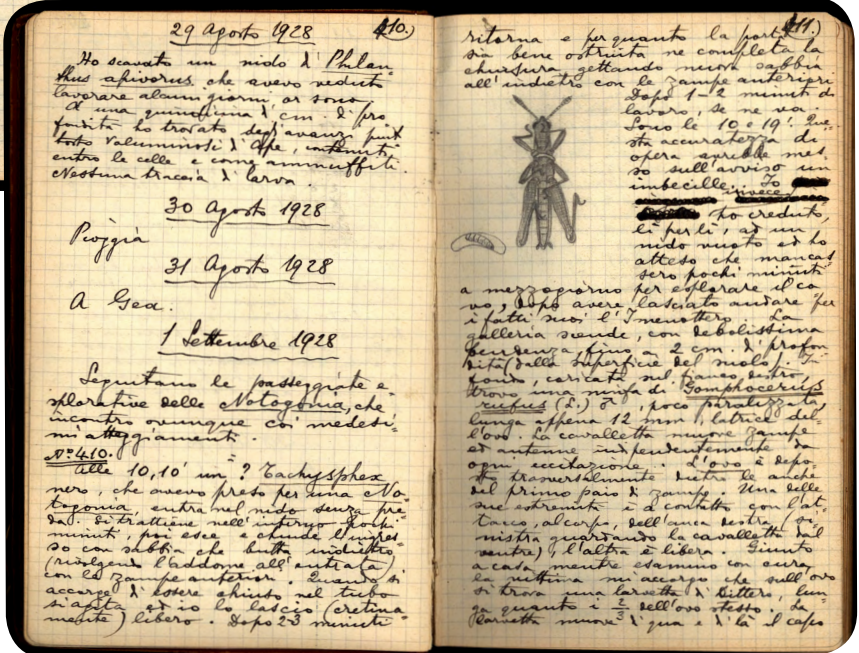 410.)
29 Agosto 1928
Ho scavato un nido d'Philan=
thus apivorus che avevo veduto
lavorare alcuni giorni or sono
A una quindicina d cm. d' pro
fondità ho trovato degl'avanzi piut
tosto voluminosi d'Ape, contenuti
entro le celle e come ammuffiti.
Nessuna traccia d'larva.
30 Agosto 1928
Pioggia
31 Agosto 1928
A Gea.
1 Settembre 1928
Seguitano le passeggiate e=
splorative delle Notogonia, che
incontro ovunque coi medesi=
mi atteggiamenti.
No 410.
Alle 10,10' un ? Tachysphex
nero, che avevo preso per una No=
togonia, entra nel nido senza pre
da. Si trattiene nell'interno pochi
minuti, poi esce e chiude l'ingres=
so con sabbia che butta indietro
(rivolgendo l'addome all'entrata)
con le zampe anteriori. Quando si
accorge d'essere chiuso nel tubo
si agita ed io lo lascio (cretina=
mente) libero. Dopo 2-3 minuti
411.)
ritorna e per quanto la porta
sia bene ostruita ne completa la
chiusura gettando nuova sabbia
all'indietro con le zampe anteriori
Dopo 1-2 minuti di
lavoro, se ne va.
Sono le 10 e 19'. Que=
sta accuratezza di
opera avrebbe mes=
so sull'avviso un
imbecille. Io
invece
ho creduto,
lì per lì, ad un
nido vuoto ed ho
atteso che mancas
sero pochi minuti
a mezzogiorno per esplorare il ca
vo, dopo avere lasciato andare per
i fatti suoi l'Imenottero. La
galleria scende, con debolissima
pendenza, fino a 2 cm. d'profon
dità (dalla superficie del suolo). In
fondo, coricata sul fianco destro,
trovo una ninfa di Gomphocerus
rufus (L.) poco paralizzata,
lunga appena 12 mm, latrice del=
l'ovo. La cavalletta muove zampe
ed antenne indipendentemente da
ogni eccitazione. L'ovo è depo=
sto trasversalmente dietro le anche
del primo paio di zampe. Una delle
sue estremità è a contatto con l'at=
tacco, al corpo, dell'anca destra (si=
nistra guardando la cavalletta dal
ventre), l'altra è libera. Giunto
a casa, mentre esamino con cura
la vittima mi accorgo che sull'ovo
si trova una larvetta d'Dittero, lun=
ga quanto i 2/3 dell'ovo stesso. La
larvetta muove d'qua e d'là il capo